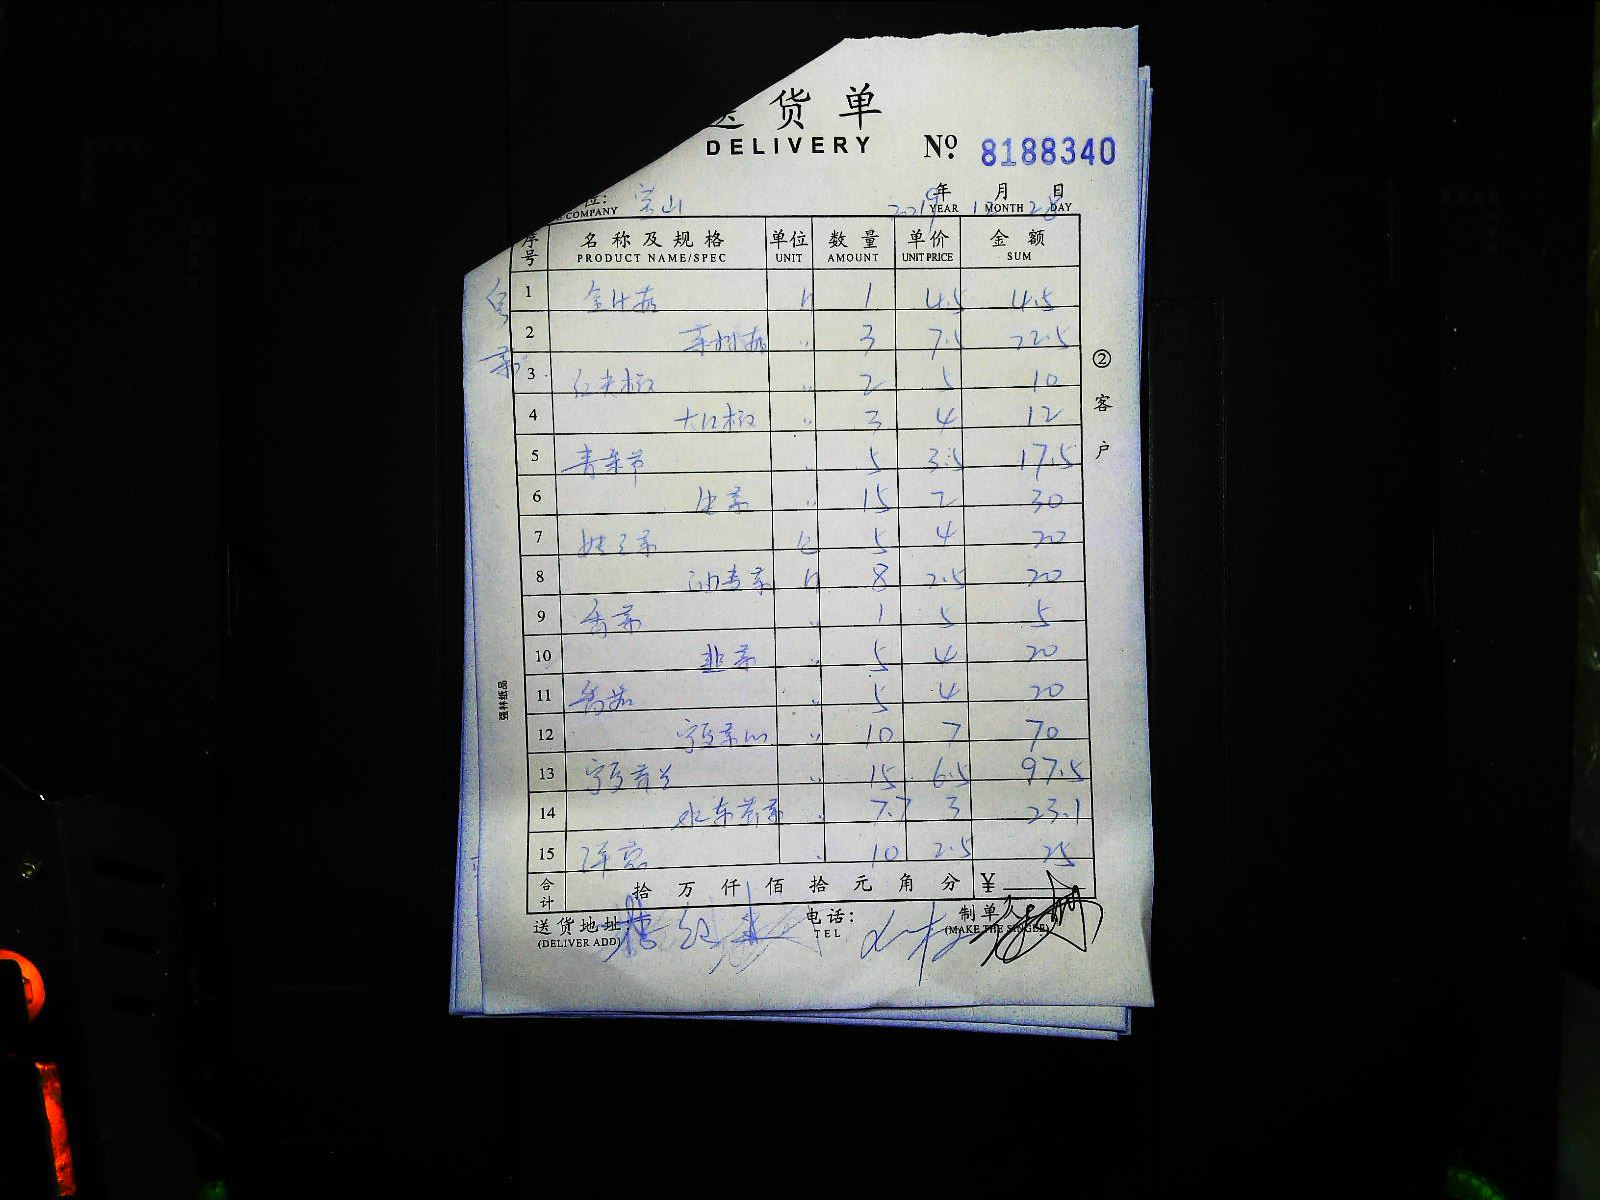 送货单
DELIVERY № 8188340
COMPANY 宝山 2019年YEAR 12月MONTH 28日DAY
序号 名称及规格 PRODUCT NAME/SPEC 单位 UNIT 数量 AMOUNT 单价 UNIT PRICE 金额 SUM
1 金针菇 斤 1 4.5 4.5
2 茶树菇 〃 3 7.5 22.5
3 红尖椒 〃 2 5 10
4 大红椒 〃 3 4 12
5 3.5 17.5
6 生菜 〃 15 2 30
7 娃娃菜 包 5 4 20
8 油麦菜 斤 8 2.5 20
9 香菜 〃 1 5 5
10 韭菜 〃 5 4 20
11 5 4 20
12 宁夏菜心 〃 10 7 70
13 15 6.5 97.5
14 水东芥菜 〃 7.7 3 23.1
15 洋葱 〃 10 2.5 25
合计 拾 万 仟 佰 拾 元 角 分 ¥
送货地址: (DELIVER ADD) 电话: TEL 制单人 (MAKE THE SINGLE)
② 客户
强林纸品